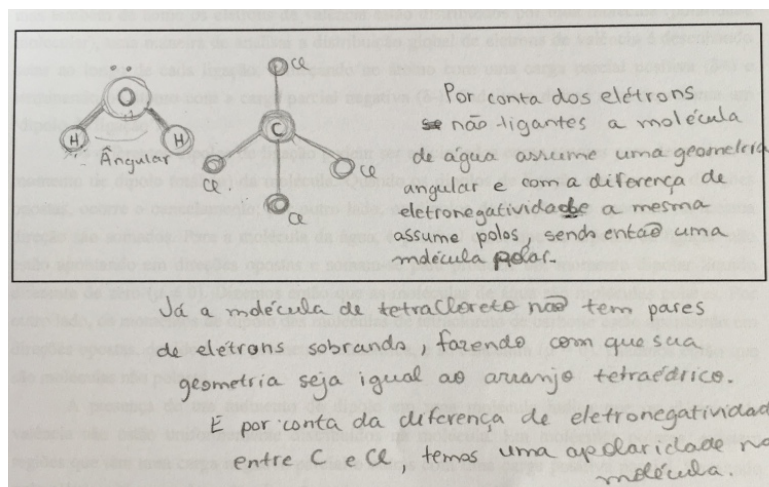 Cl
O
H
H
Angular
C
Cl
Cl
Cl
Por conta dos elétrons
não ligantes a molécula
de água assume uma geometria
angular e com a diferença de
eletronegatividade a mesma
assume polos, sendo então uma
molécula polar.
Já a molécula de tetracloreto não tem pares
de elétrons sobrando, fazendo com que sua
geometria seja igual ao arranjo tetraédrico.
E por conta da diferença de eletronegatividad
entre C e Cl, temos uma apolaridade na
molécula.